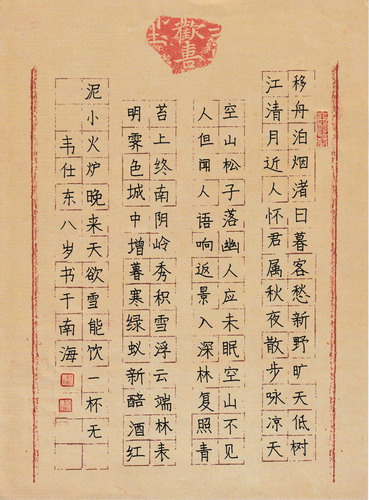 移舟泊烟渚日暮客愁新野旷天低树
江清月近人怀君属秋夜散步咏凉天
空山松子落幽人应未眠空山不见
人但闻人语响返景入深林复照青
苔上终南阴岭秀积雪浮云端林表
明霁色城中增暮寒绿蚁新醅酒红
泥小火炉晚来天欲雪能饮一杯无
韦仕东八岁书于南海